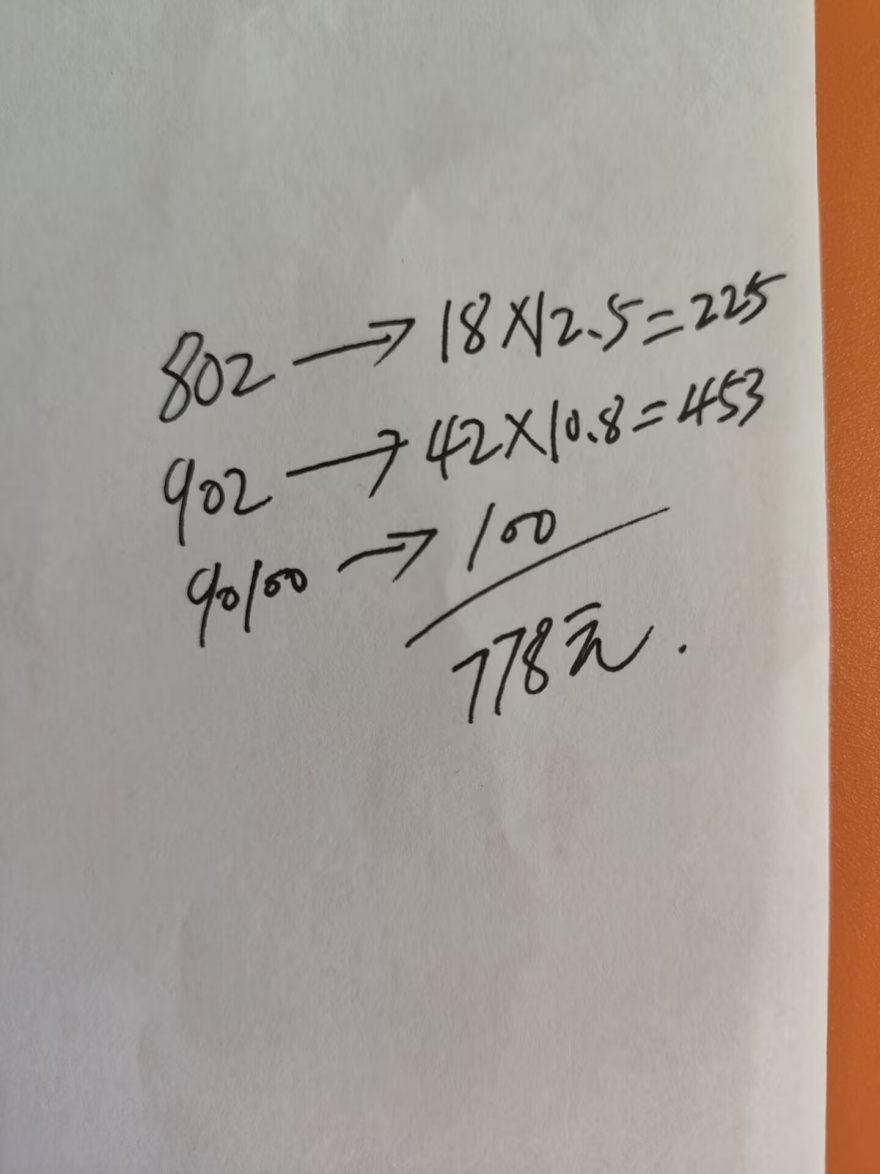 802 → 18×12.5=225
902 → 42×10.8=453
90100 → 100
778元.